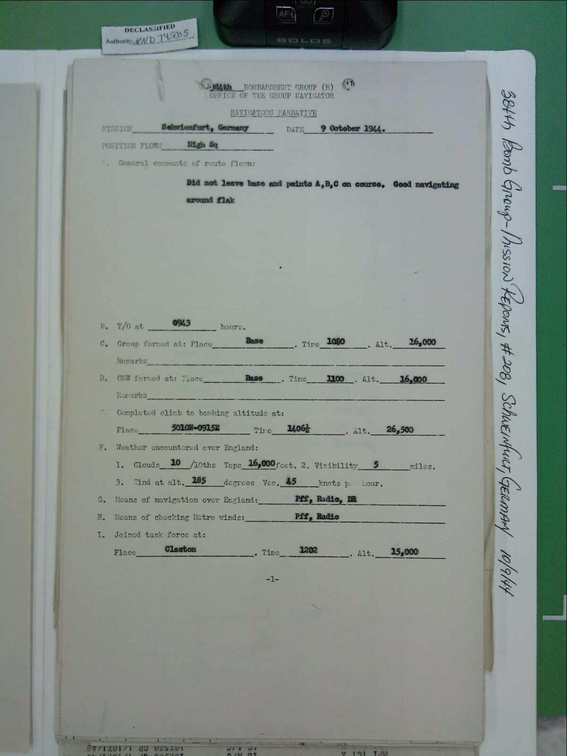 DECLASSIFIED
Authority NND 745015
AF-L
SOLOS
384th BOMBARDMENT GROUP (H)
OFFICE OF THE GROUP NAVIGATOR
NAVIGATORS NARRATIVE
MISSION Schwienfurt, Germany DATE 9 October 1944.
POSITION FLOWN High Sq
General comments of route flown:
Did not leave base and points A,B,C on course. Good navigating
around flak
B. T/O at 0943 hours.
C. Group formed at: Place Base, Time 1040. Alt. 16,000
Remarks
D. CBW formed at: Place Base, Time 1100 Alt. 16,000
Remarks
Completed climb to bombing altitude at:
Place 5010N-0915E Time 1406½ Alt. 26,500
F. Weather encountered over England:
1. Clouds 10 /10ths Tops 16,000 feet. 2. Visibility 5 miles.
3. Wind at alt. 185 degrees Vec. 45 knots p hour.
G. Means of navigation over England: Pff, Radio, DR
H. Means of checking Metro winds: Pff, Radio
I. Joined task force at:
Place Clacton, Time 1202 Alt. 15,000
-1-
384th Bomb Group-Mission Reports, #208, Schweinfurt, Germany 10/9/44